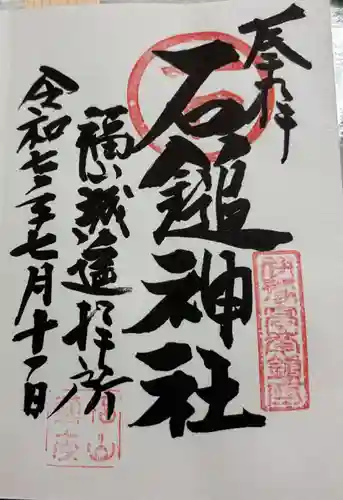 奉拝
石鎚神社
福山城遥拝所
令和七年七月十一日